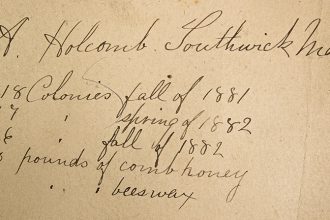 A. Holcomb. Southwick Ma
18 Colonies fall of 1881
7 " spring of 1882
6 " fall of 1882
pounds of comb honey
" " beeswax